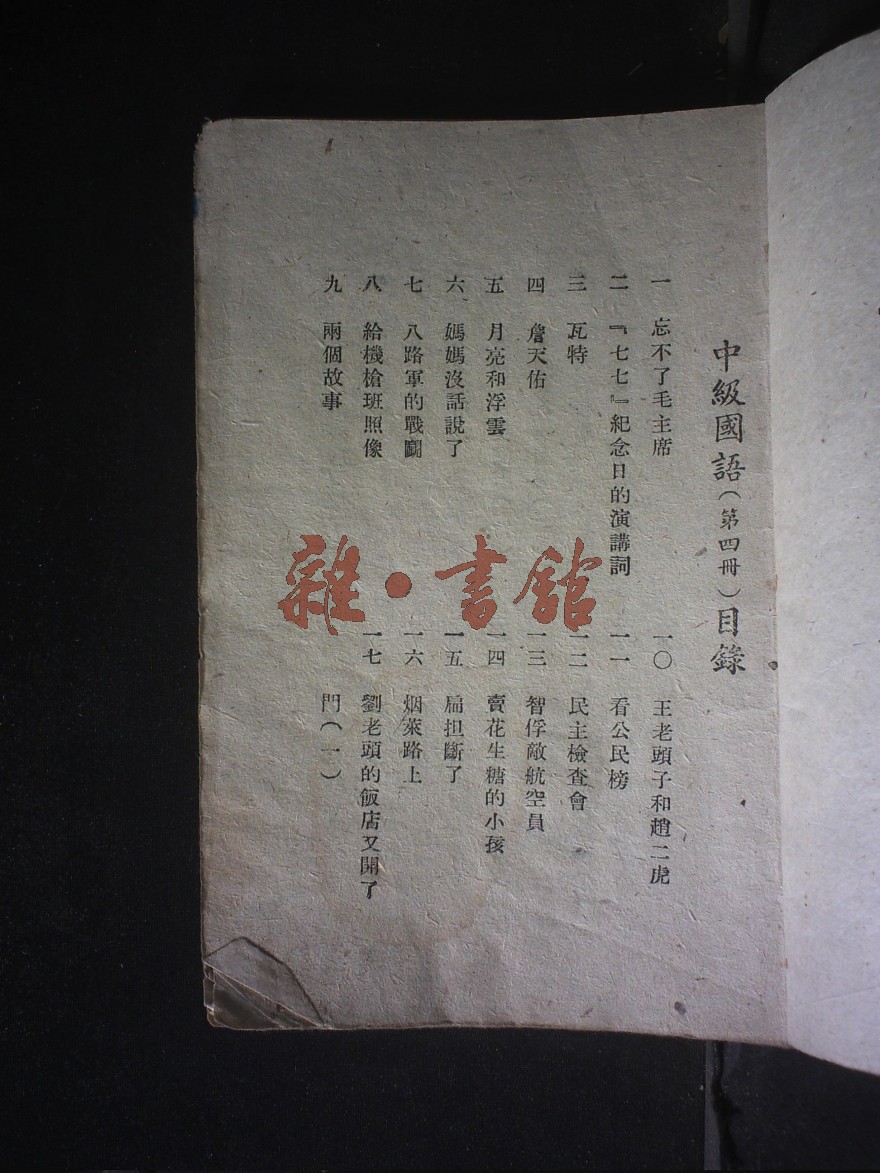 中級國語（第四冊）目錄
一 忘不了毛主席
二 『七七』紀念日的演講詞
三 瓦特
四 詹天佑
五 月亮和浮雲
六 媽媽沒話說了
七 八路軍的戰鬪
八 給機槍班照像
九 兩個故事
一〇 王老頭子和趙二虎
一一 看公民榜
一二 民主檢查會
一三 智俘敵航空員
一四 賣花生糖的小孩
一五 扁担斷了
一六 烟萊路上
一七 劉老頭的飯店又開了
門（一）
雜·書館